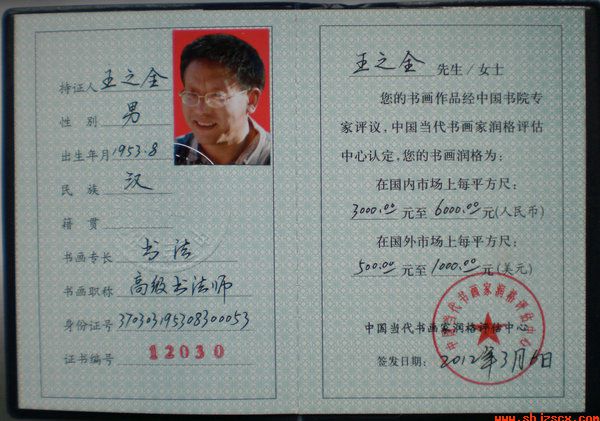 持证人 王之全
性 别 男
出生年月 1953.8
民 族 汉
籍 贯
书画专长 书法
书画职称 高级书法师
身份证号 370303195308300053
证书编号 12030
王之全 先生/女士
您的书画作品经中国书院专
家评议,中国当代书画家润格评估
中心认定,您的书画润格为:
在国内市场上每平方尺:
3000.00 元至 6000.00 元(人民币)
在国外市场上每平方尺:
500.00 元至 1000.00 元(美元)
中国当代书画家润格评估中心
中国当代书画家润格评估中心
签发日期: 2012年3月6日
www.shjzscx.com